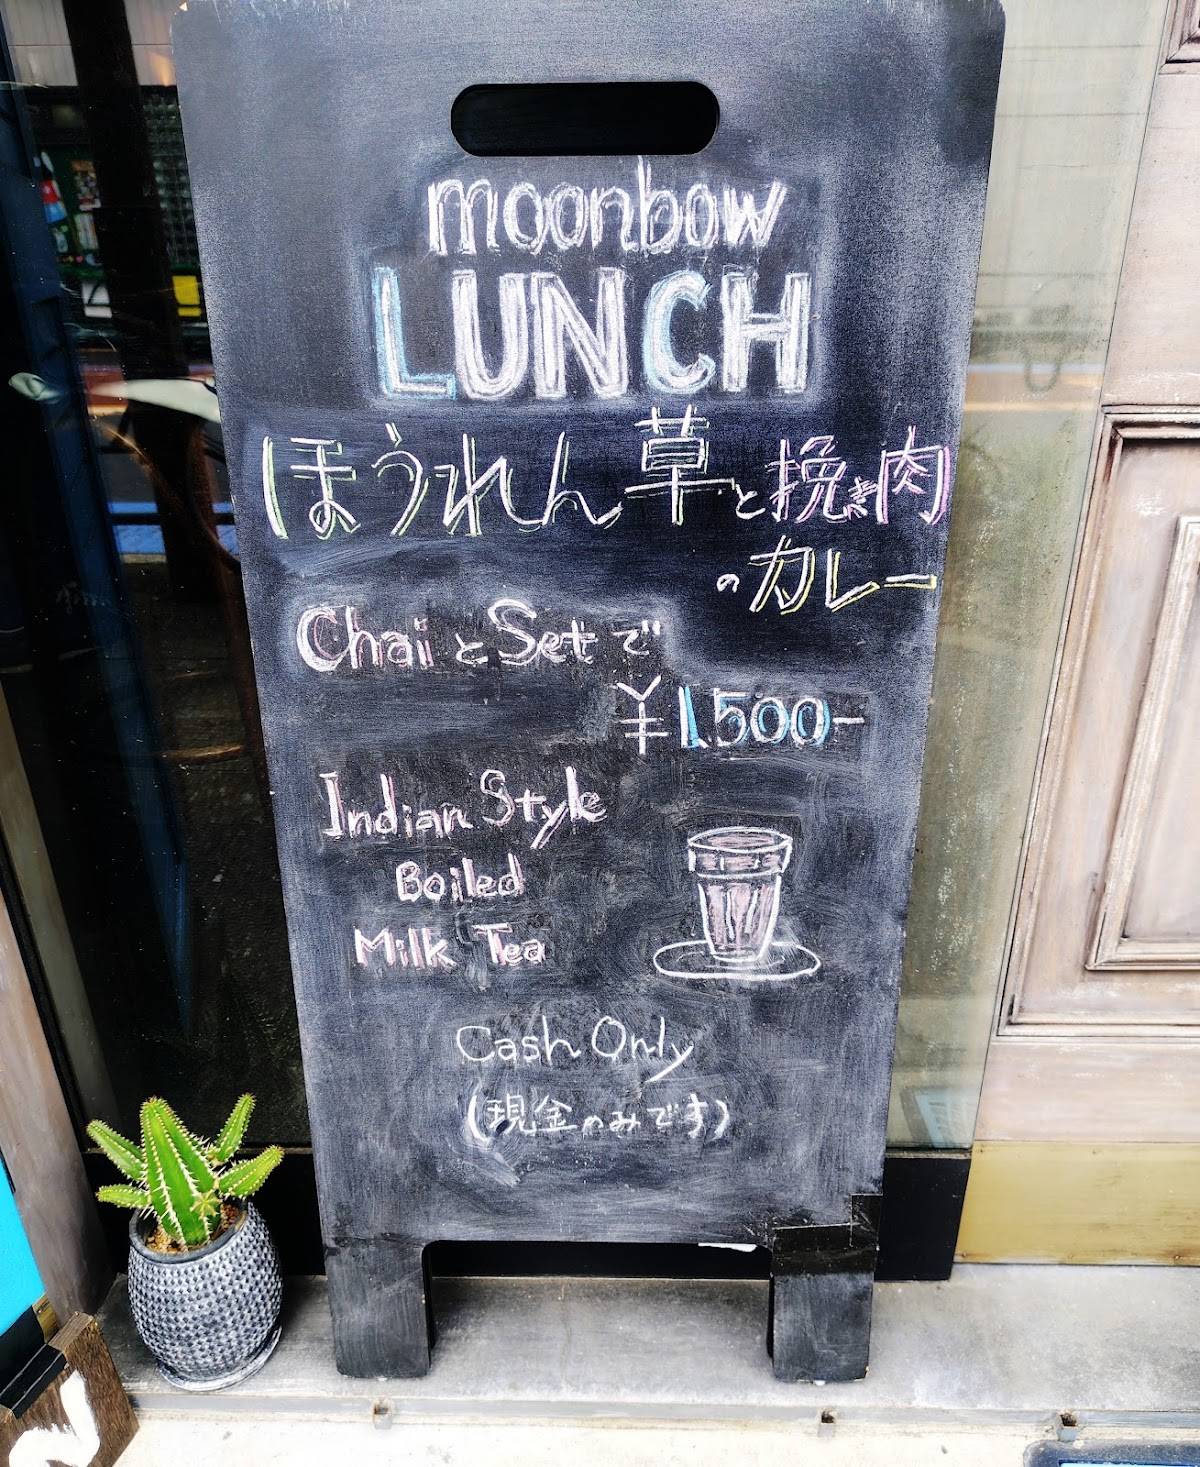 moonbow
LUNCH
ほうれん草と挽き肉
のカレー
Chai とSetで
¥1,500-
Indian Style
Boiled
Milk Tea
Cash Only
(現金のみです)